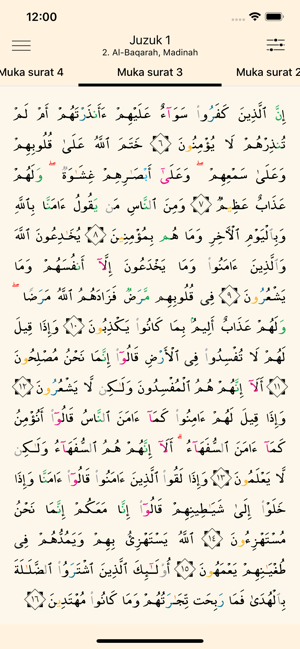 12:00
Juzuk 1
2. Al-Baqarah, Madinah
Muka surat 4
Muka surat 3
Muka surat 2
إِنَّ ٱلَّذِينَ كَفَرُوا۟ سَوَآءٌ عَلَيْهِمْ ءَأَنذَرْتَهُمْ أَمْ لَمْ
تُنذِرْهُمْ لَا يُؤْمِنُونَ ٦ خَتَمَ ٱللَّهُ عَلَىٰ قُلُوبِهِمْ
وَعَلَىٰ سَمْعِهِمْ ۖ وَعَلَىٰٓ أَبْصَـٰرِهِمْ غِشَـٰوَةٌ ۖ وَلَهُمْ
عَذَابٌ عَظِيمٌ ٧ وَمِنَ ٱلنَّاسِ مَن يَقُولُ ءَامَنَّا بِٱللَّهِ
وَبِٱلْيَوْمِ ٱلْـَٔاخِرِ وَمَا هُم بِمُؤْمِنِينَ ٨ يُخَـٰدِعُونَ ٱللَّهَ
وَٱلَّذِينَ ءَامَنُوا۟ وَمَا يَخْدَعُونَ إِلَّآ أَنفُسَهُمْ وَمَا
يَشْعُرُونَ ٩ فِى قُلُوبِهِم مَّرَضٌ فَزَادَهُمُ ٱللَّهُ مَرَضًا ۖ
وَلَهُمْ عَذَابٌ أَلِيمٌۢ بِمَا كَانُوا۟ يَكْذِبُونَ ١٠ وَإِذَا قِيلَ
لَهُمْ لَا تُفْسِدُوا۟ فِى ٱلْأَرْضِ قَالُوٓا۟ إِنَّمَا نَحْنُ مُصْلِحُونَ
١١ أَلَآ إِنَّهُمْ هُمُ ٱلْمُفْسِدُونَ وَلَـٰكِن لَّا يَشْعُرُونَ ١٢
وَإِذَا قِيلَ لَهُمْ ءَامِنُوا۟ كَمَآ ءَامَنَ ٱلنَّاسُ قَالُوٓا۟ أَنُؤْمِنُ
كَمَآ ءَامَنَ ٱلسُّفَهَآءُ ۗ أَلَآ إِنَّهُمْ هُمُ ٱلسُّفَهَآءُ وَلَـٰكِن
لَّا يَعْلَمُونَ ١٣ وَإِذَا لَقُوا۟ ٱلَّذِينَ ءَامَنُوا۟ قَالُوٓا۟ ءَامَنَّا وَإِذَا
خَلَوْا۟ إِلَىٰ شَيَـٰطِينِهِمْ قَالُوٓا۟ إِنَّا مَعَكُمْ إِنَّمَا نَحْنُ
مُسْتَهْزِءُونَ ١٤ ٱللَّهُ يَسْتَهْزِئُ بِهِمْ وَيَمُدُّهُمْ فِى
طُغْيَـٰنِهِمْ يَعْمَهُونَ ١٥ أُو۟لَـٰٓئِكَ ٱلَّذِينَ ٱشْتَرَوُا۟ ٱلضَّلَـٰلَةَ
بِٱلْهُدَىٰ فَمَا رَبِحَت تِّجَـٰرَتُهُمْ وَمَا كَانُوا۟ مُهْتَدِينَ ١٦